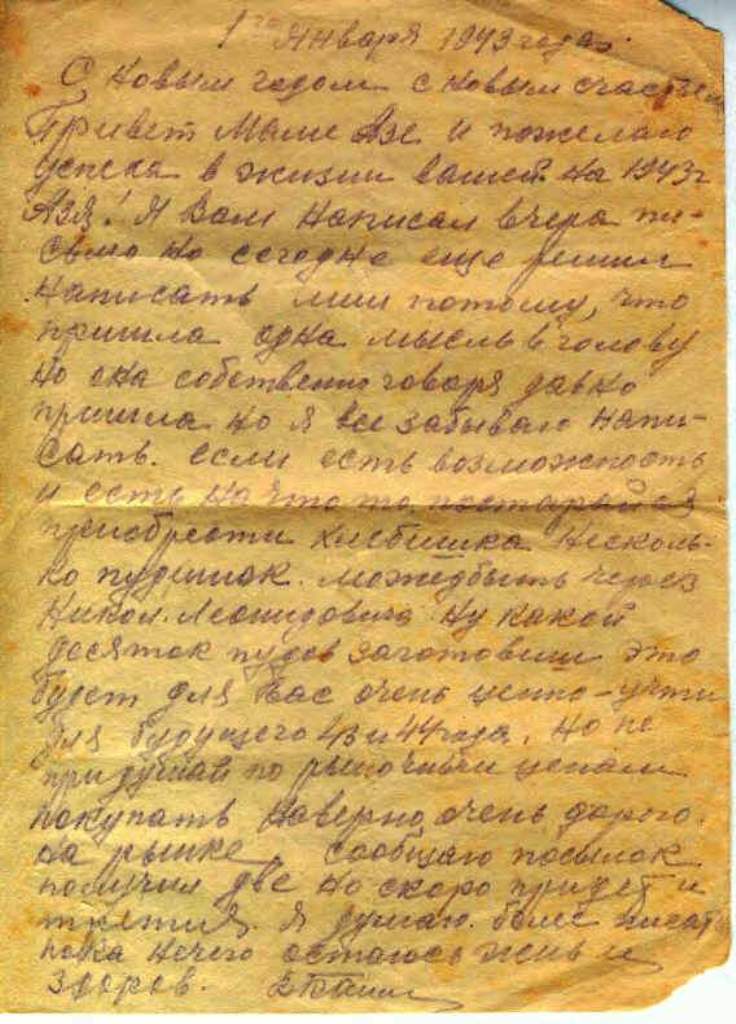 1го Января 1943 года.
С новым годом с новым счастьем
Привет Маме Азе и пожелаю
успеха в жизни вашей на 1943 г
Азя! Я Вам написал вчера пи-
сьмо но сегодне еще решил
написать лиш потому, что
пришла одна мысль в голову
но она собственно говоря давно
пришла но я все забываю напи-
сать. если есть возможность
и есть на что то постарайся
приобрести хлебишка несколь-
ко пудишок. можедбыть через
Никол. Леонидовича ну какой
десяток пудов заготовиш это
будет для Вас очень ценно - учти
для будущего 43 и 44 года. Но не
придумай по рыночным ценам
покупать наверно очень дорого.
на рынке, сообщаю посылок
получил две но скоро придет и
третия. Я думаю более писат
пока нечего остаюсь жив и
здоров.